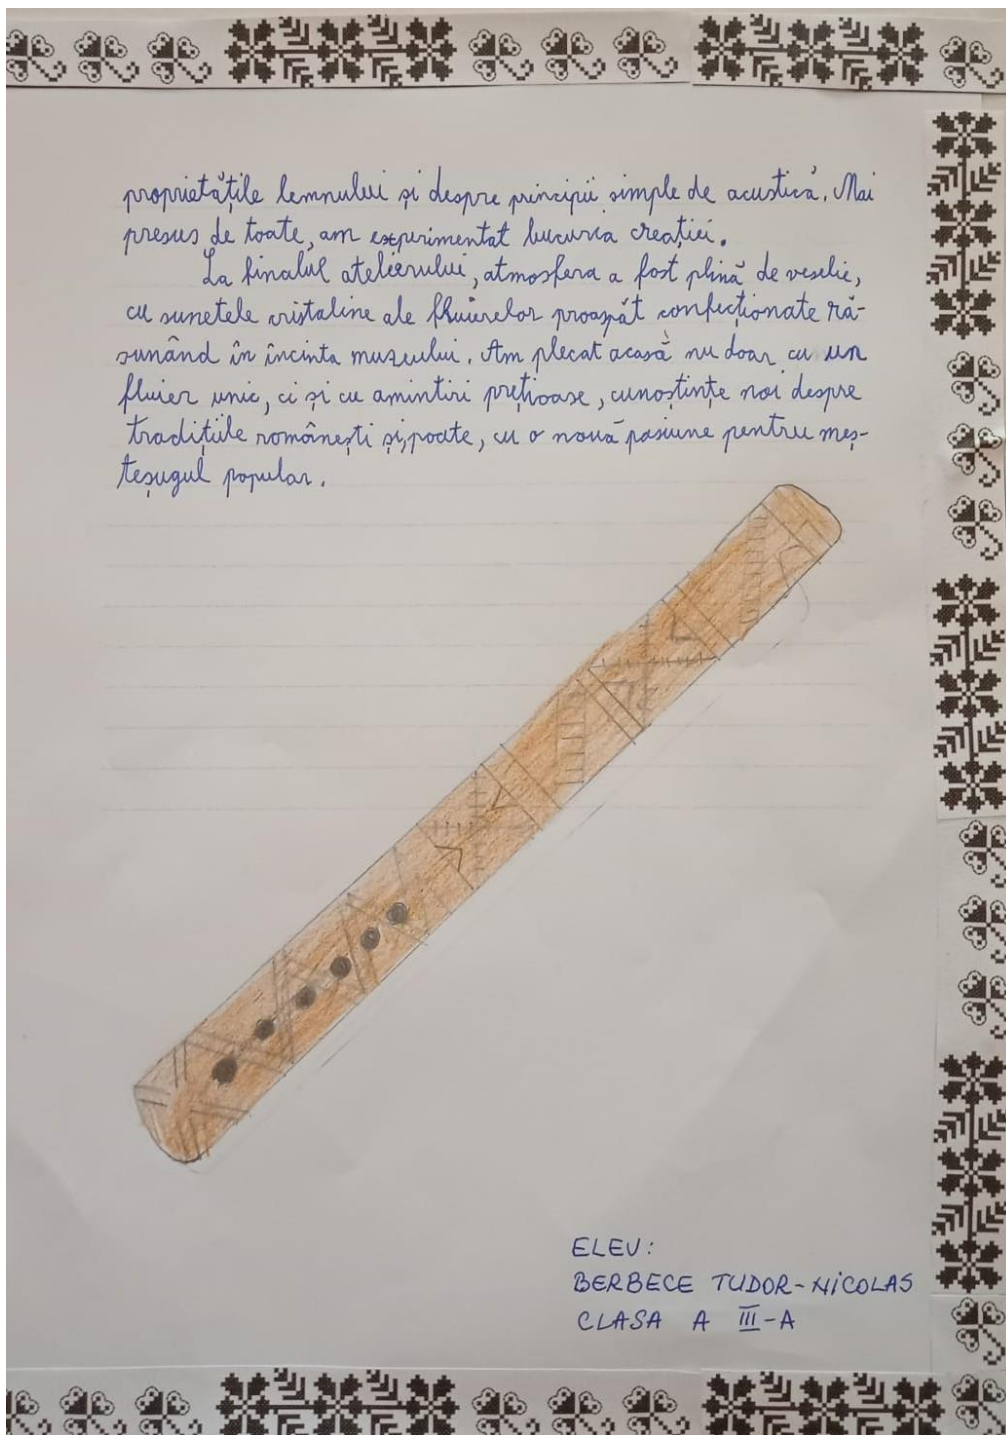 proprietățile lemnului și despre principii simple de acustică. Mai
presus de toate, am experimentat bucuria creației.
La finalul atelierului, atmosfera a fost plină de veselie,
cu sunetele cristaline ale fluierelor proaspăt confecționate ră-
sunând în incinta muzeului. Am plecat acasă nu doar cu un
fluier unic, ci și cu amintiri prețioase, cunoștințe noi despre
tradițiile românești și, poate, cu o nouă pasiune pentru meș-
teșugul popular.
ELEV:
BERBECE TUDOR-NICOLAS
CLASA A III-A